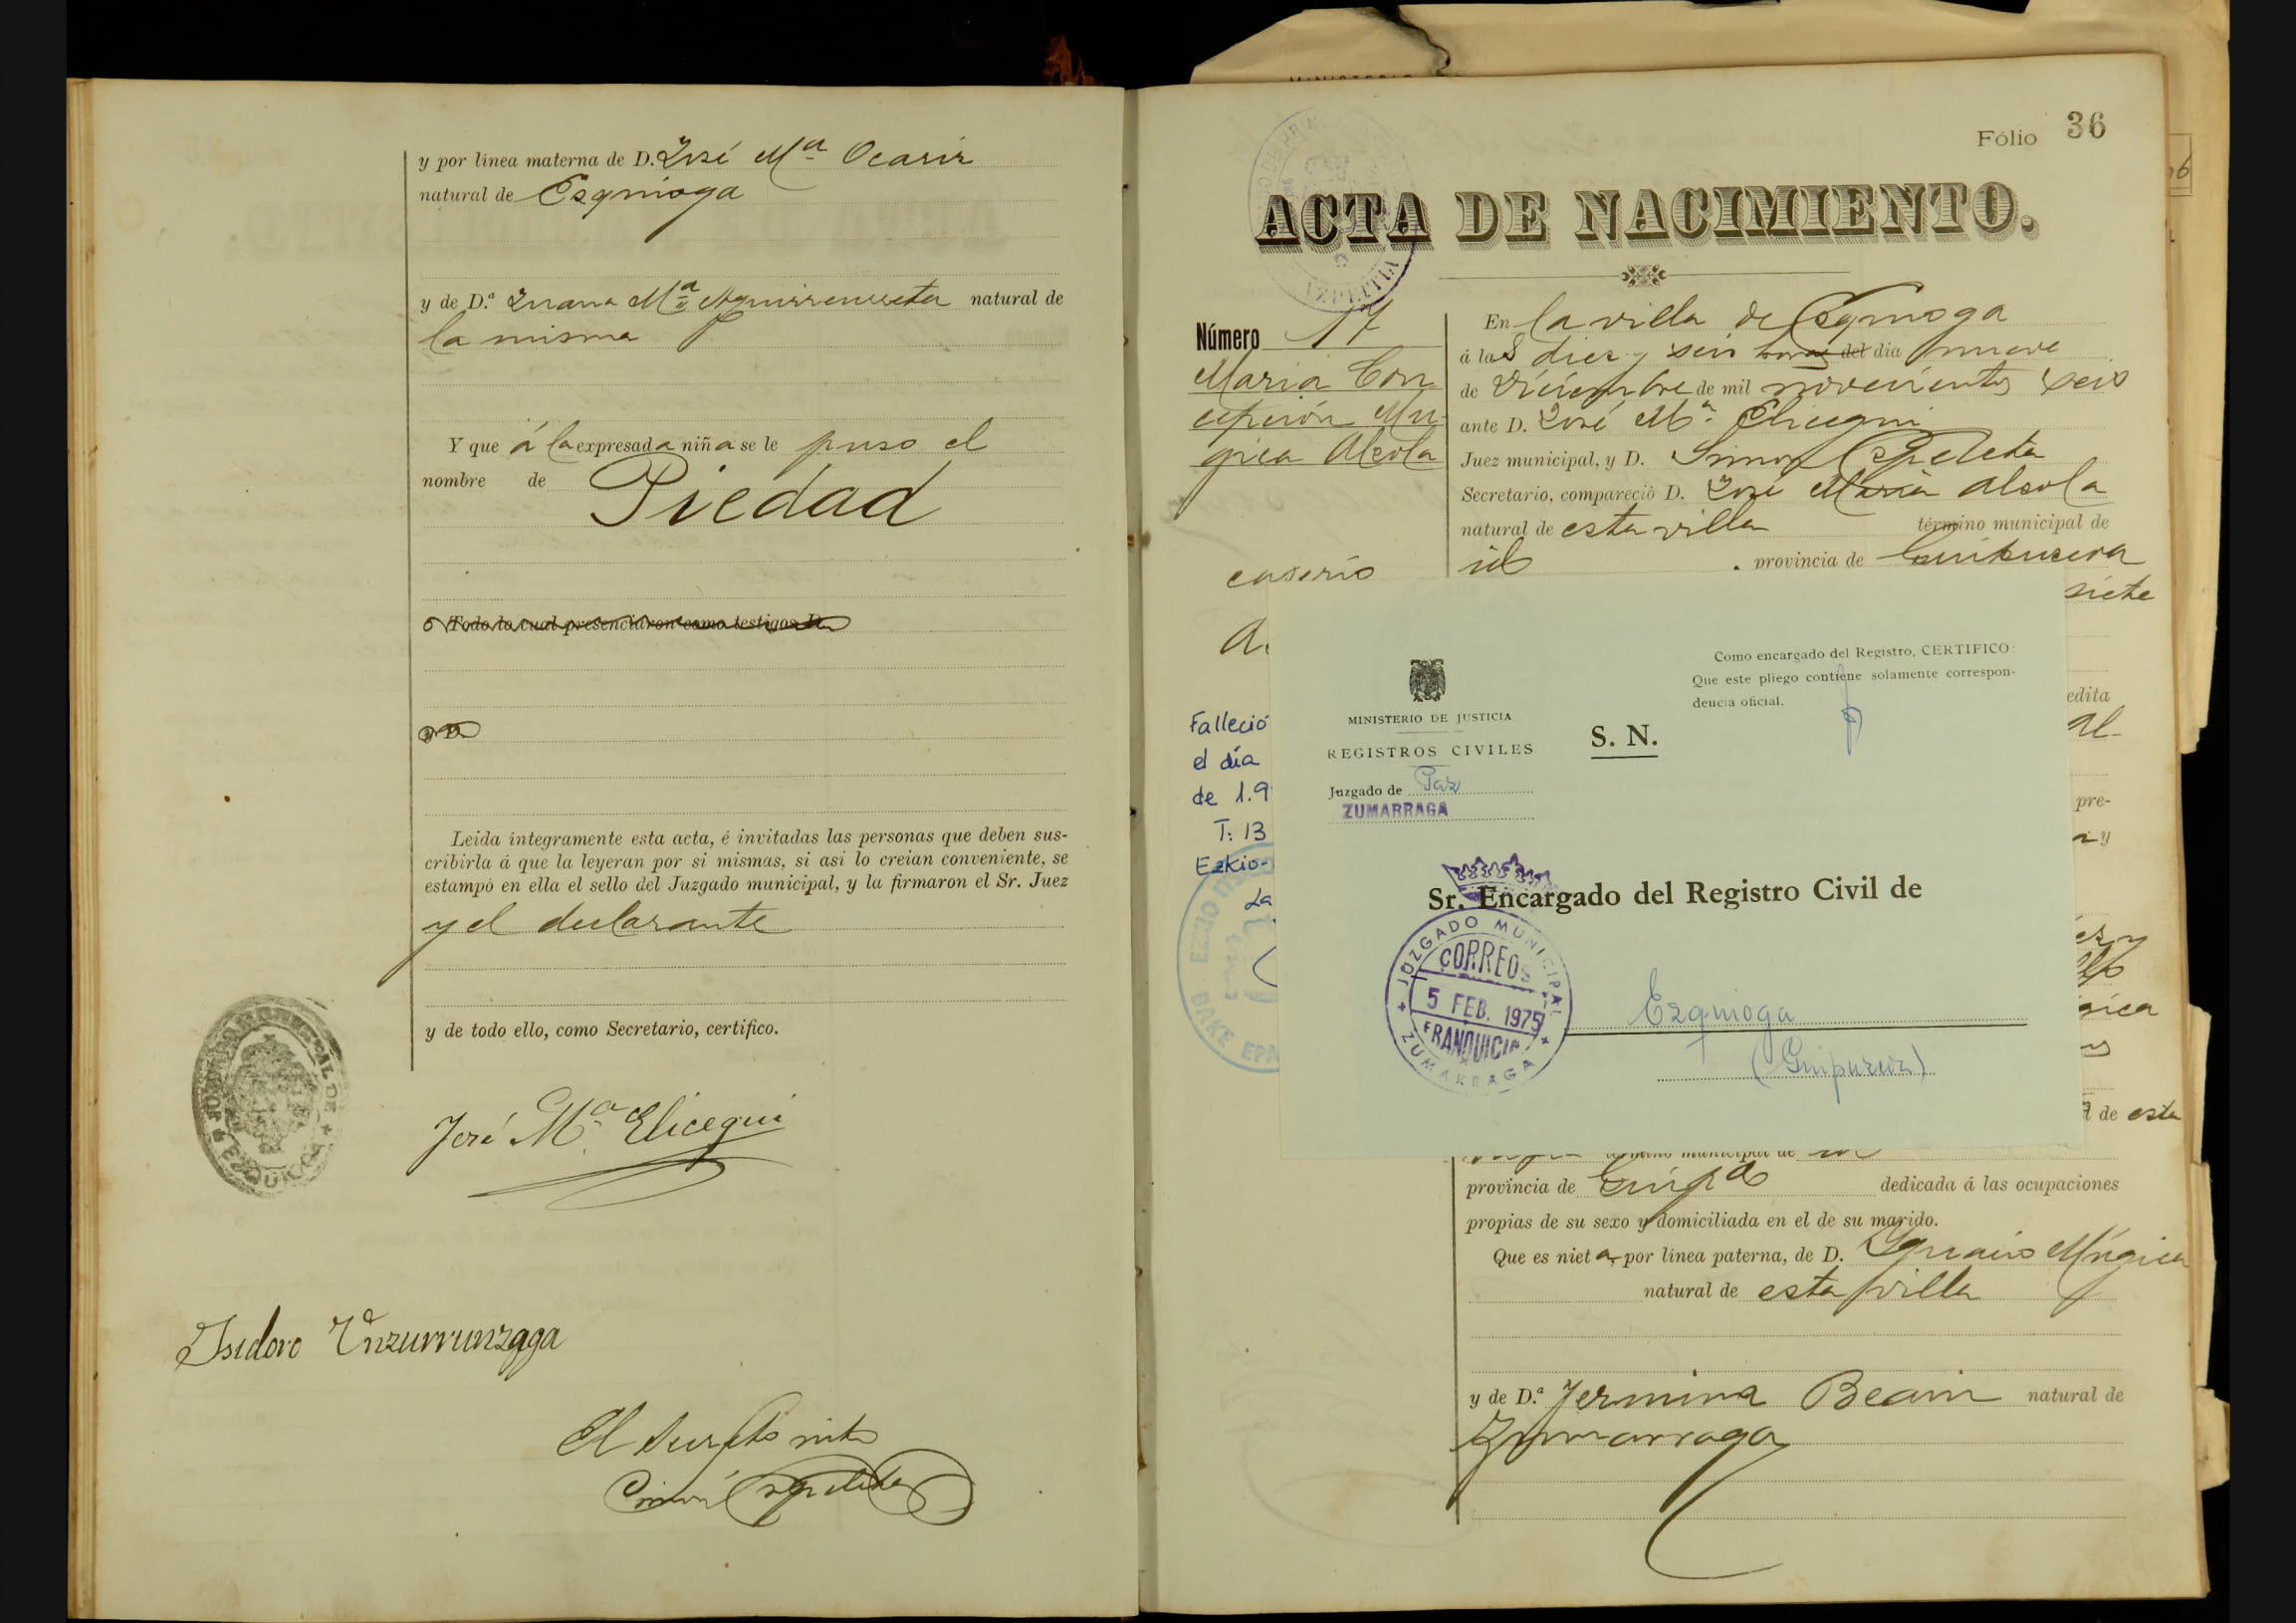 y por línea materna de D. José Mª Ocariz
natural de Ezquioga
y de D.ª Juana Mª Aguirreurreta natural de
la misma
Y que á la expresada niña se le puso el
nombre de Piedad
Todo lo cual presenciaron como testigos D.
y D.
Leida íntegramente esta acta, é invitadas las personas que deben sus-
cribirla á que la leyeran por si mismas, si asi lo creian conveniente, se
estampó en ella el sello del Juzgado municipal, y la firmaron el Sr. Juez
y el declarante
y de todo ello, como Secretario, certifico.
José Mª Elicegui
Isidoro Unzurrunzaga
El
Simón Ezpeleta
Fólio 36
ACTA DE NACIMIENTO.
AZPEITIA
Número 17
Maria Con
cepción Mu-
gica Alcola
caserio
Falleció
el día
de 1.9
T: 13
Ezkio-
La
BAKE EPA
En la villa de Ezquioga
á las diez y seis horas del dia nueve
de Diciembre de mil novecientos seis
ante D. José Mª Elicegui
Juez municipal, y D. Simon Ezpeleta
Secretario, compareció D. José Maria Alcola
natural de esta villa término municipal de
id provincia de Guipuzcoa
siete
edita
Al-
pre-
y
gica
de esta
MINISTERIO DE JUSTICIA
REGISTROS CIVILES
Juzgado de Paz
ZUMARRAGA
S. N.
Como encargado del Registro, CERTIFICO:
Que este pliego contiene solamente correspon-
dencia oficial.
Sr. Encargado del Registro Civil de
Ezquioga
(Guipuzcoa)
JUZGADO MUNICIPAL
CORREOS
5 FEB. 1975
FRANQUICIA
ZUMARRAGA
término municipal de id
provincia de Guipª dedicada á las ocupaciones
propias de su sexo y domiciliada en el de su marido.
Que es nieta, por línea paterna, de D. Ignacio Múgica
natural de esta villa
y de D.ª Fermina Beain natural de
Zumarraga